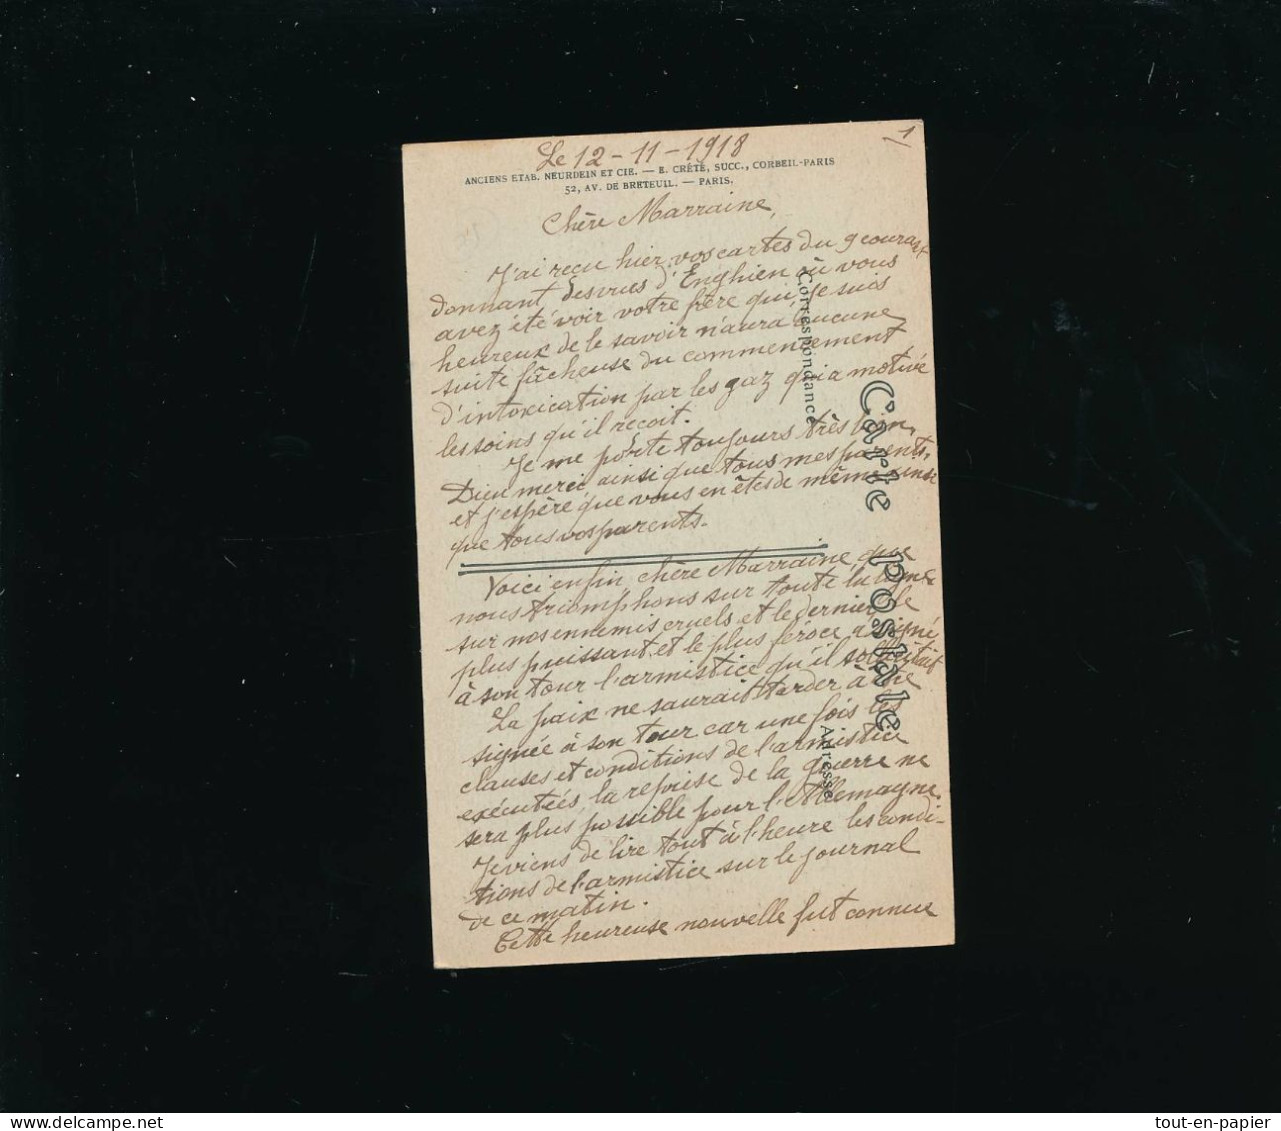 1
Le 12-11-1918
ANCIENS ETAB. NEURDEIN ET CIE. — E. CRÉTÉ, SUCC., CORBEIL-PARIS
52, AV. DE BRETEUIL. — PARIS.
Chère Marraine,
J'ai reçu hier vos cartes du 9 courant
donnant des vues d'Enghien où vous
avez été voir votre frère qui, je suis
heureux de le savoir n'aura aucune
suite fâcheuse du commencement
d'intoxication par les gaz qui a motivé
les soins qu'il reçoit.
Je me porte toujours très bien,
Dieu merci ainsi que tous mes parents,
et j'espère que vous en êtes de même ainsi
que tous vos parents.
Voici enfin chère Marraine que
nous triomphons sur toute la ligne
sur nos ennemis cruels et le dernier le
plus puissant et le plus féroce a signé
à son tour l'armistice qu'il sollicitait
La paix ne saurait tarder à être
signée à son tour car une fois les
clauses et conditions de l'armistice
exécutées, la reprise de la guerre ne
sera plus possible pour l'Allemagne.
Je viens de lire tout à l'heure les condi-
tions de l'armistice sur le journal
de ce matin.
Cette heureuse nouvelle fut connue
Correspondance
Carte postale
Adresse
tout-en-papier